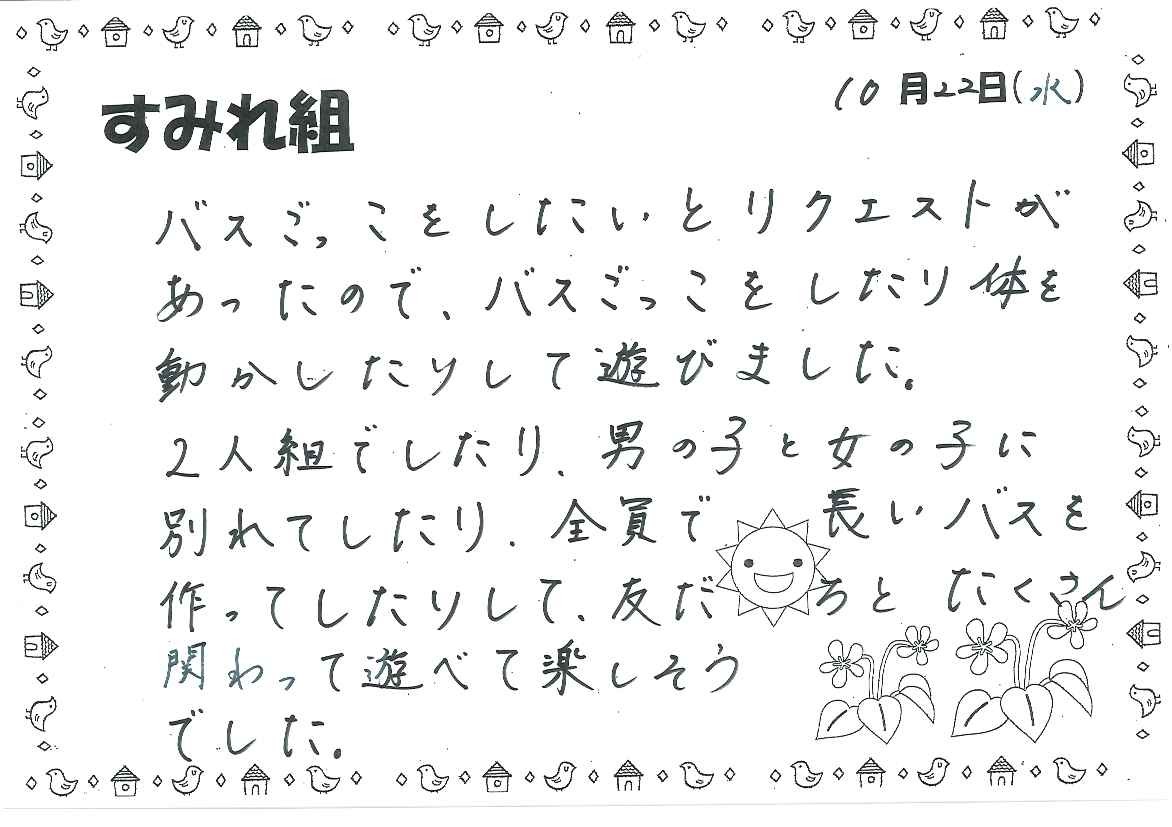 すみれ組
10月22日(水)
バスごっこをしたいとリクエストが
あったので、バスごっこをしたり体を
動かしたりして遊びました。
2人組でしたり、男の子と女の子に
別れてしたり、全員で長いバスを
作ってしたりして、友だちとたくさん
関わって遊べて楽しそう
でした。